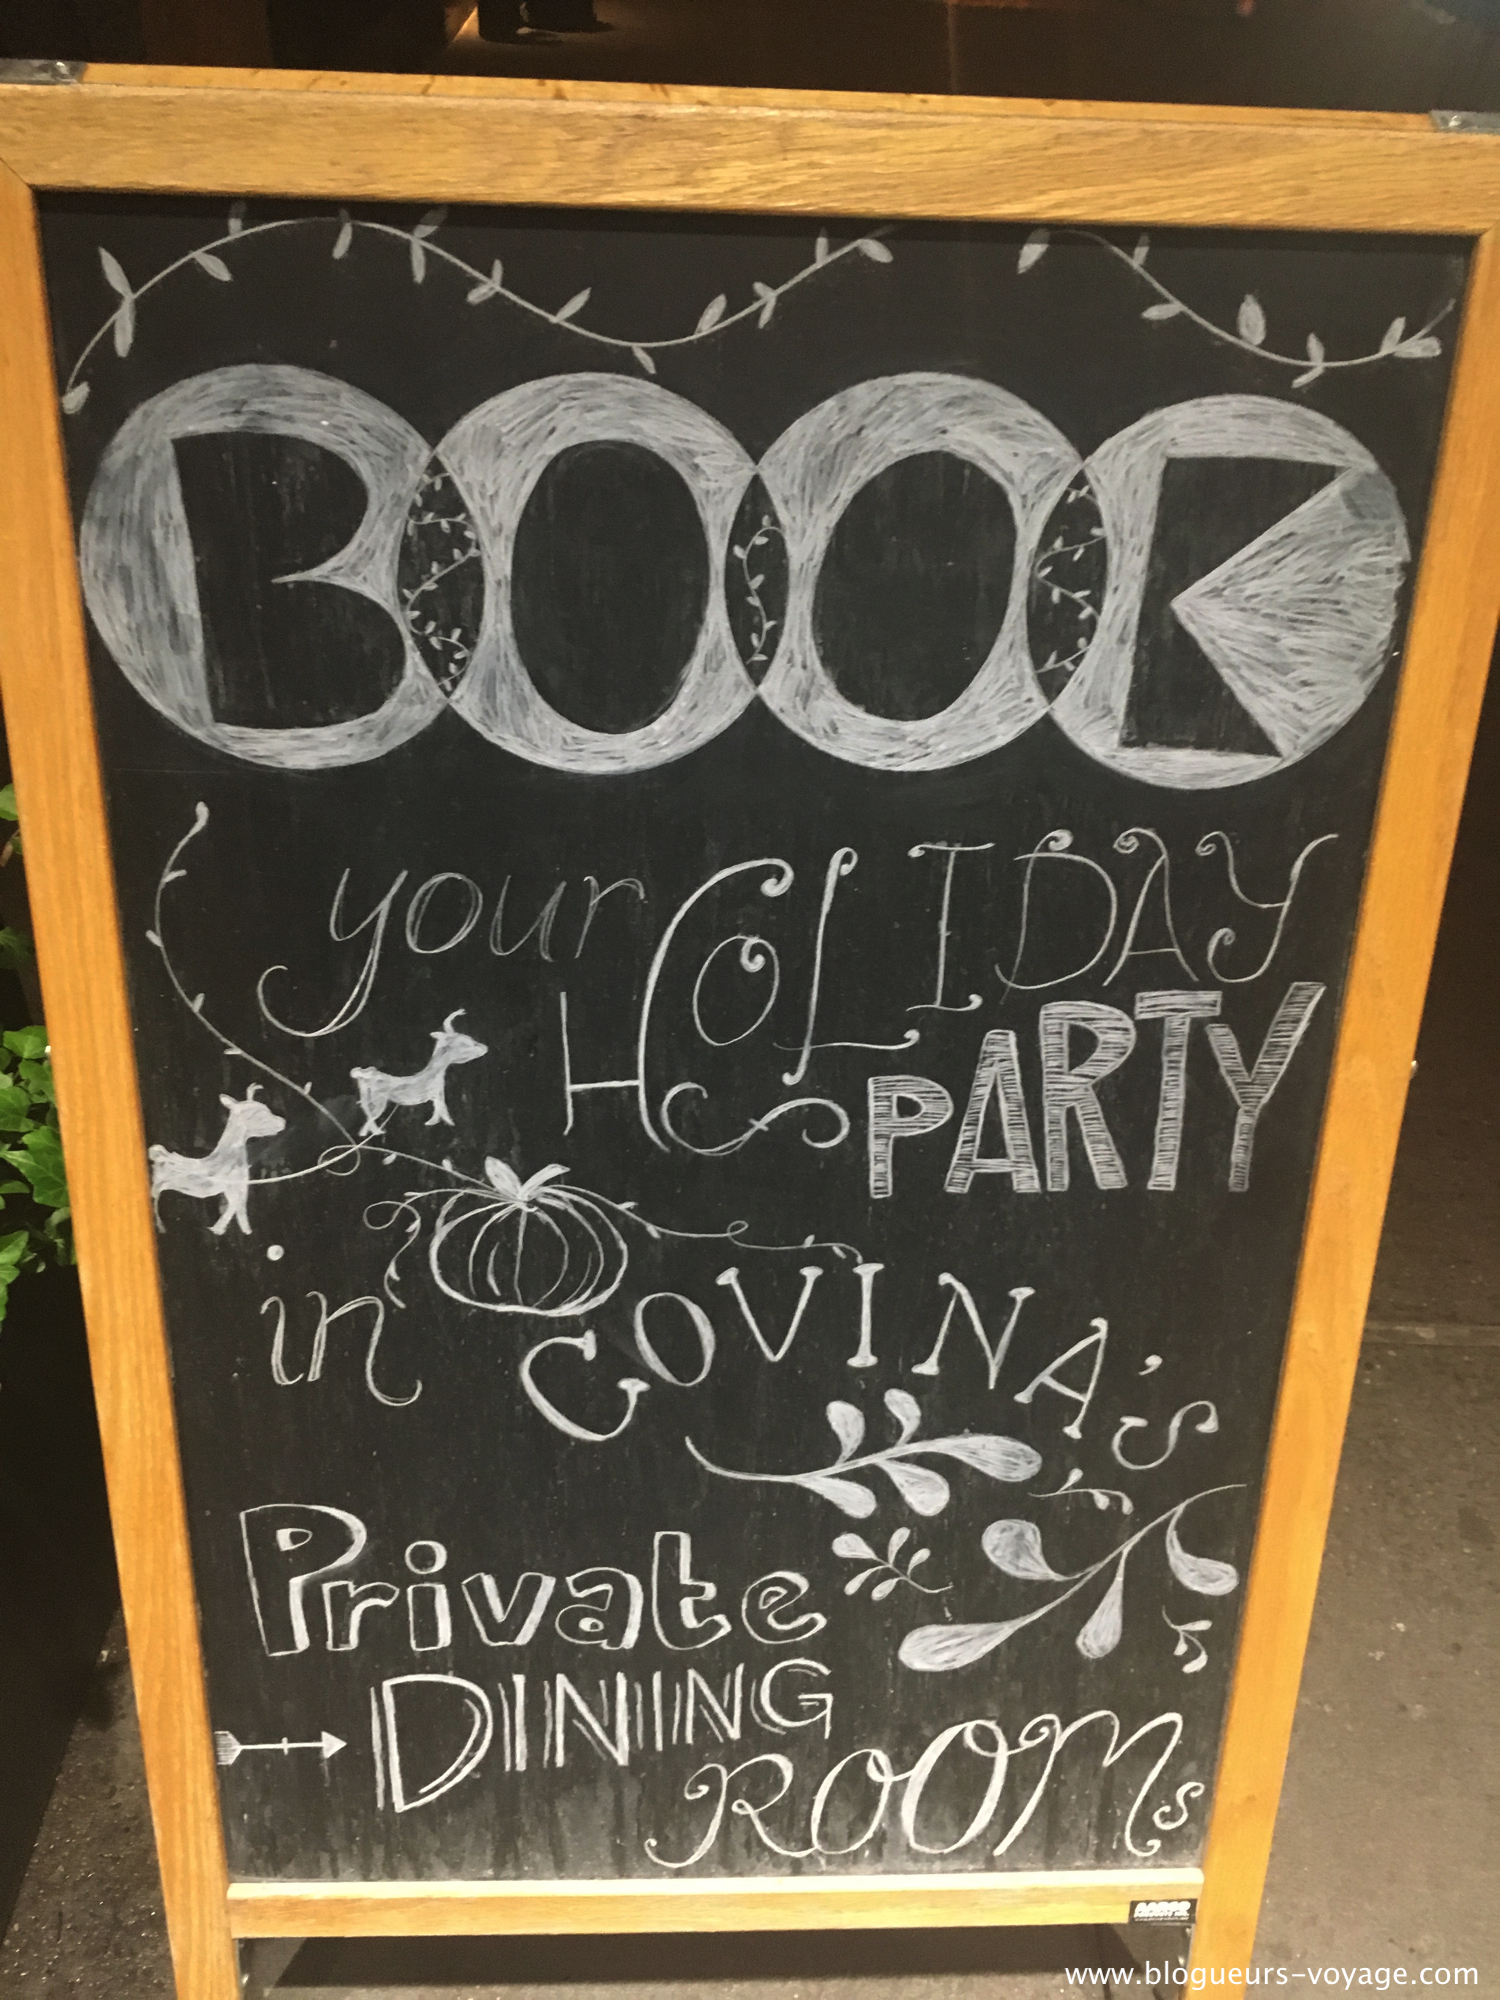 BOOK
your HOLIDAY
PARTY
in COVINA'S
Private
DINING
ROOMs
www.blogueurs-voyage.com